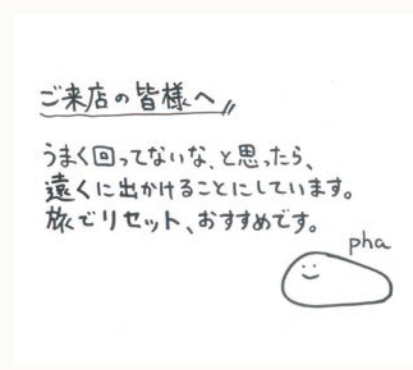 ご来店の皆様へ
うまく回ってないな、と思ったら、
遠くに出かけることにしています。
旅でリセット、おすすめです。
pha